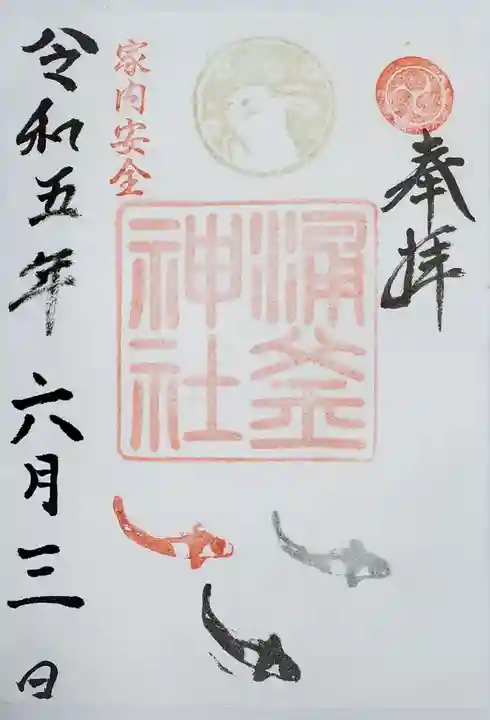 奉拝
涌釜
神社
家内安全
令和五年六月三日